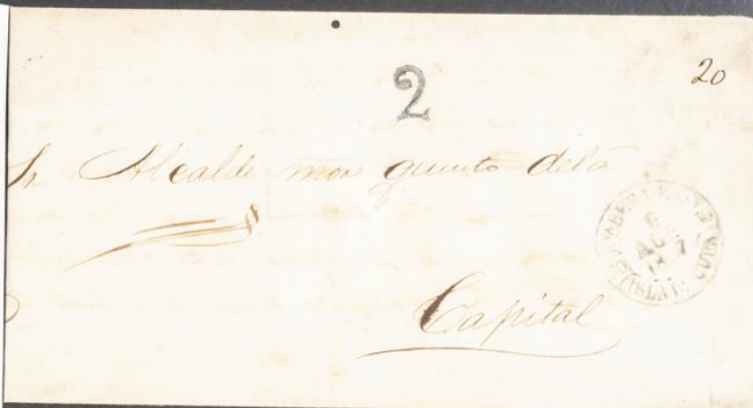 2
20
Sr Alcalde mor quinto dela
Capital